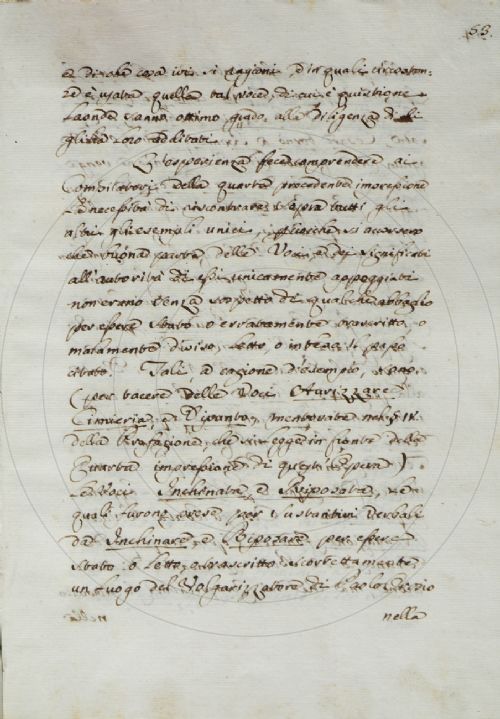 53.
e di che cosa ivi si ragioni, e in quale
è usata quella tal voce, di cui è quistione
Laonde sanno ottimo grado alla diligenza di
gli loro additati
L'esperienza fece comprendere ai
Compilatori della quarta precedente impressione
la necessità di riscontrare sopra tutti gli
altri gli esempli unici, si accorsero
che buona parte delle Voci, e dei significati
all'autorità di essi unicamente appoggiati
non erano senza sospetto di qualche abbaglio
per essere stato o erratamente trascritto, o
malamente diviso, letto, o inteso il passo
citato. Tali, a cagione d'esempio, sono
(per tacere delle Voci Aurizzare
Cimieria, e Dipanto, mentovate nel § IV.
della Prefazione, che si legge in fronte della
Quarta impressione di quest'Opera)
le Voci Inchinata, e Riposata, le
quali furono prese per sustantivi verbali
da Inchinare, e Riposare per essere
stato o letto, o trascritto scorrettamente
un luogo del Volgarizzatore di Paolo Orosio
nella